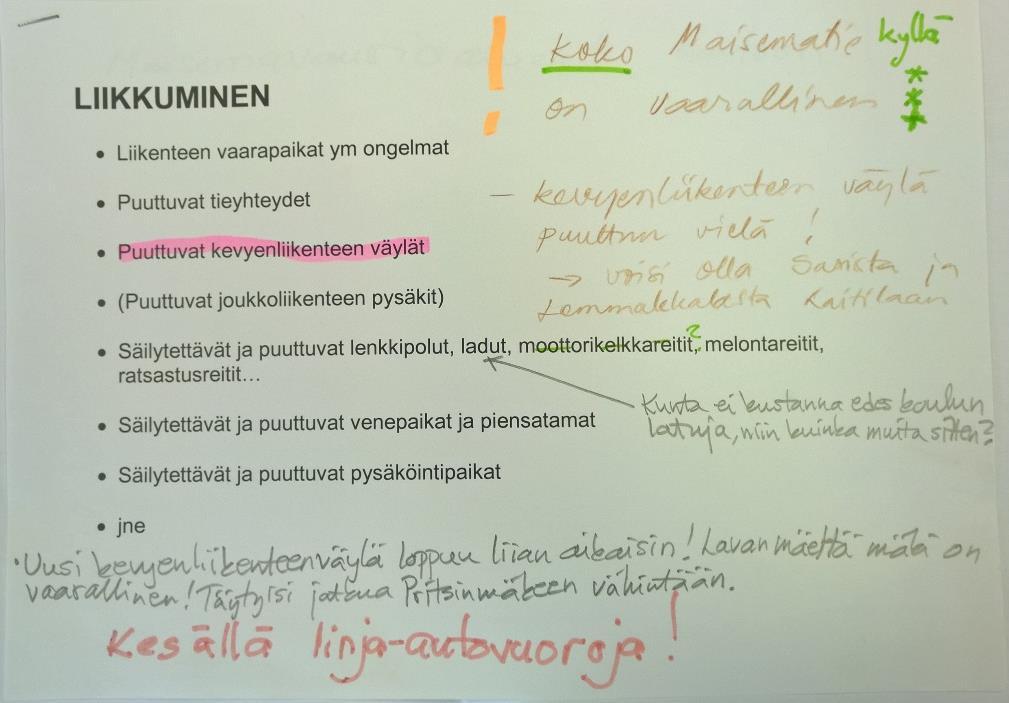 ! koko Maisematie kyllä
on vaarallinen ***
LIIKKUMINEN
• Liikenteen vaarapaikat ym ongelmat
• Puuttuvat tieyhteydet
– kevyenliikenteen väylä
puuttuu vielä !
• Puuttuvat kevyenliikenteen väylät
→ voisi olla Sarista ja
Lemmakkalasta Kaitilaan
• (Puuttuvat joukkoliikenteen pysäkit)
• Säilytettävät ja puuttuvat lenkkipolut, ladut, moottorikelkkareitit?, melontareitit,
ratsastusreitit…
Kunta ei kustanna edes koulun
latuja, niin kuinka muita sitten?
• Säilytettävät ja puuttuvat venepaikat ja piensatamat
• Säilytettävät ja puuttuvat pysäköintipaikat
• jne
• Uusi kevyenliikenteenväylä loppuu liian aikaisin! Lavanmäeltä mäki on
vaarallinen! Täytyisi jatkua Pritsinmäkeen vähintään.
Kesällä linja-autovuoroja!